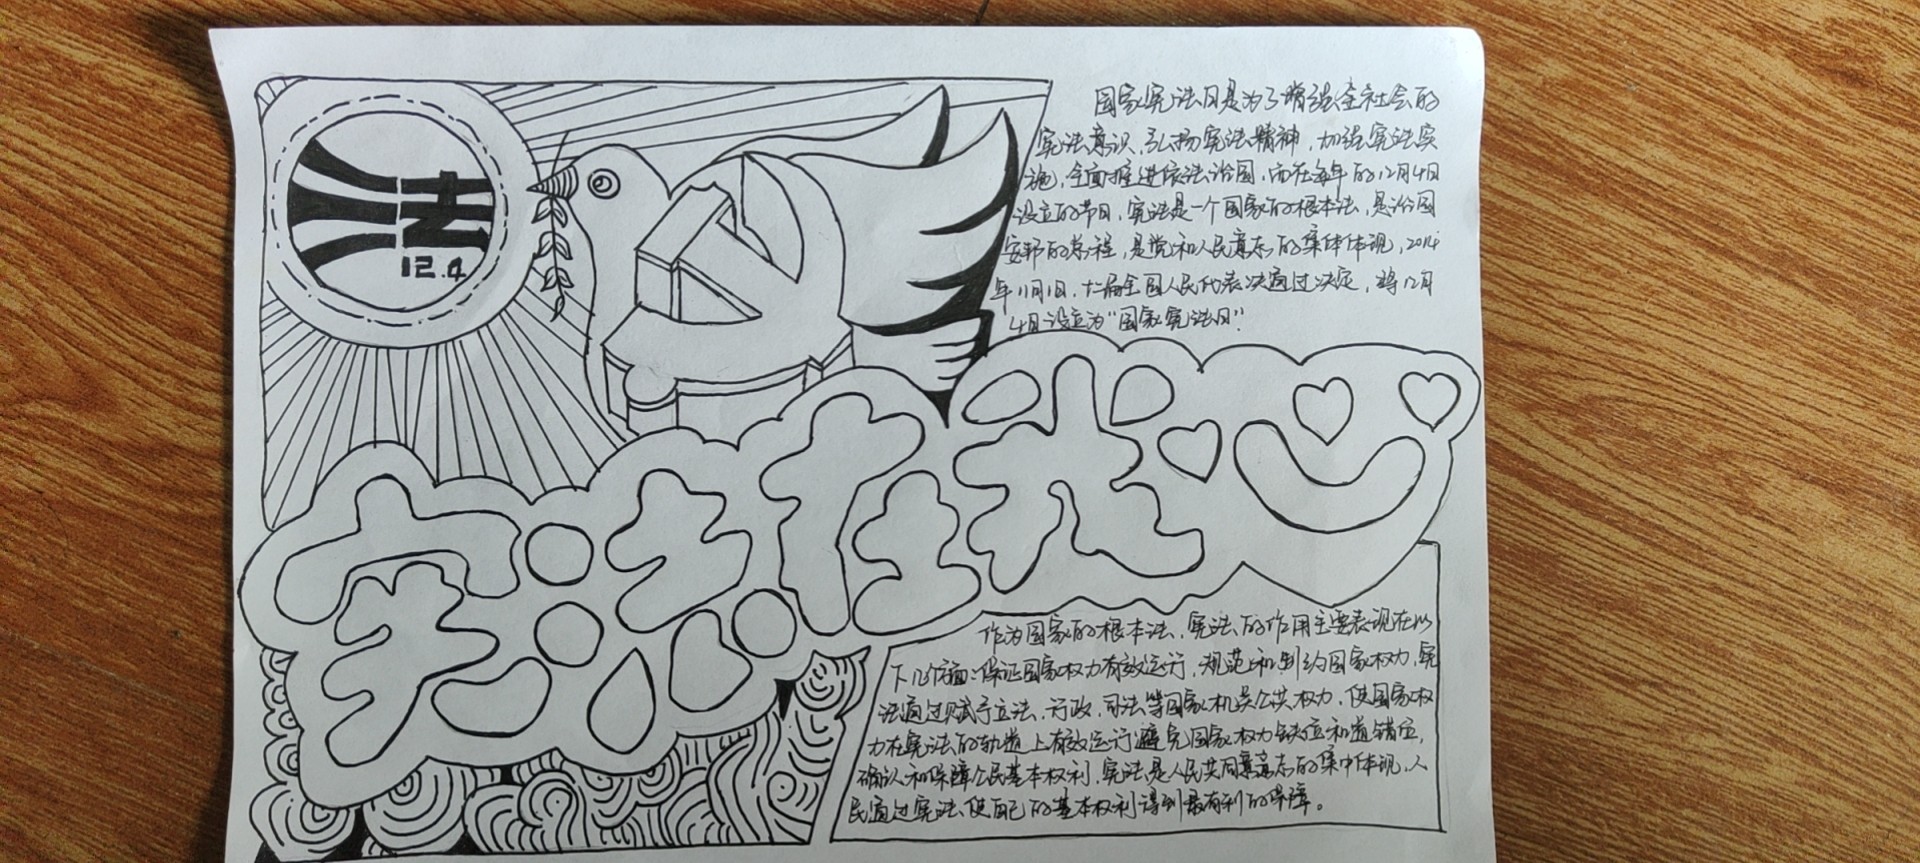 法
12.4
国家宪法日是为了增强全社会的
宪法意识，弘扬宪法精神，加强宪法实
施，全面推进依法治国，而在每年的12月4日
设立的节日，宪法是一个国家的根本法，是治国
安邦的总章程，是党和人民意志的集体体现，2014
年11月1日，十二届全国人民代表决通过决定，将12月
4日设立为“国家宪法日”
宪法在我心
作为国家的根本法，宪法的作用主要表现在以
下几个方面：保证国家权力有效运行，规范和制约国家权力，宪
法通过赋予立法，行政，司法等国家机关公共权力，使国家权
力在宪法的轨道上有效运行避免国家权力缺位和道错位，
确认和保障公民基本权利，宪法是人民共同意志的集中体现，人
民通过宪法使自己的基本权利得到最有利的保障。